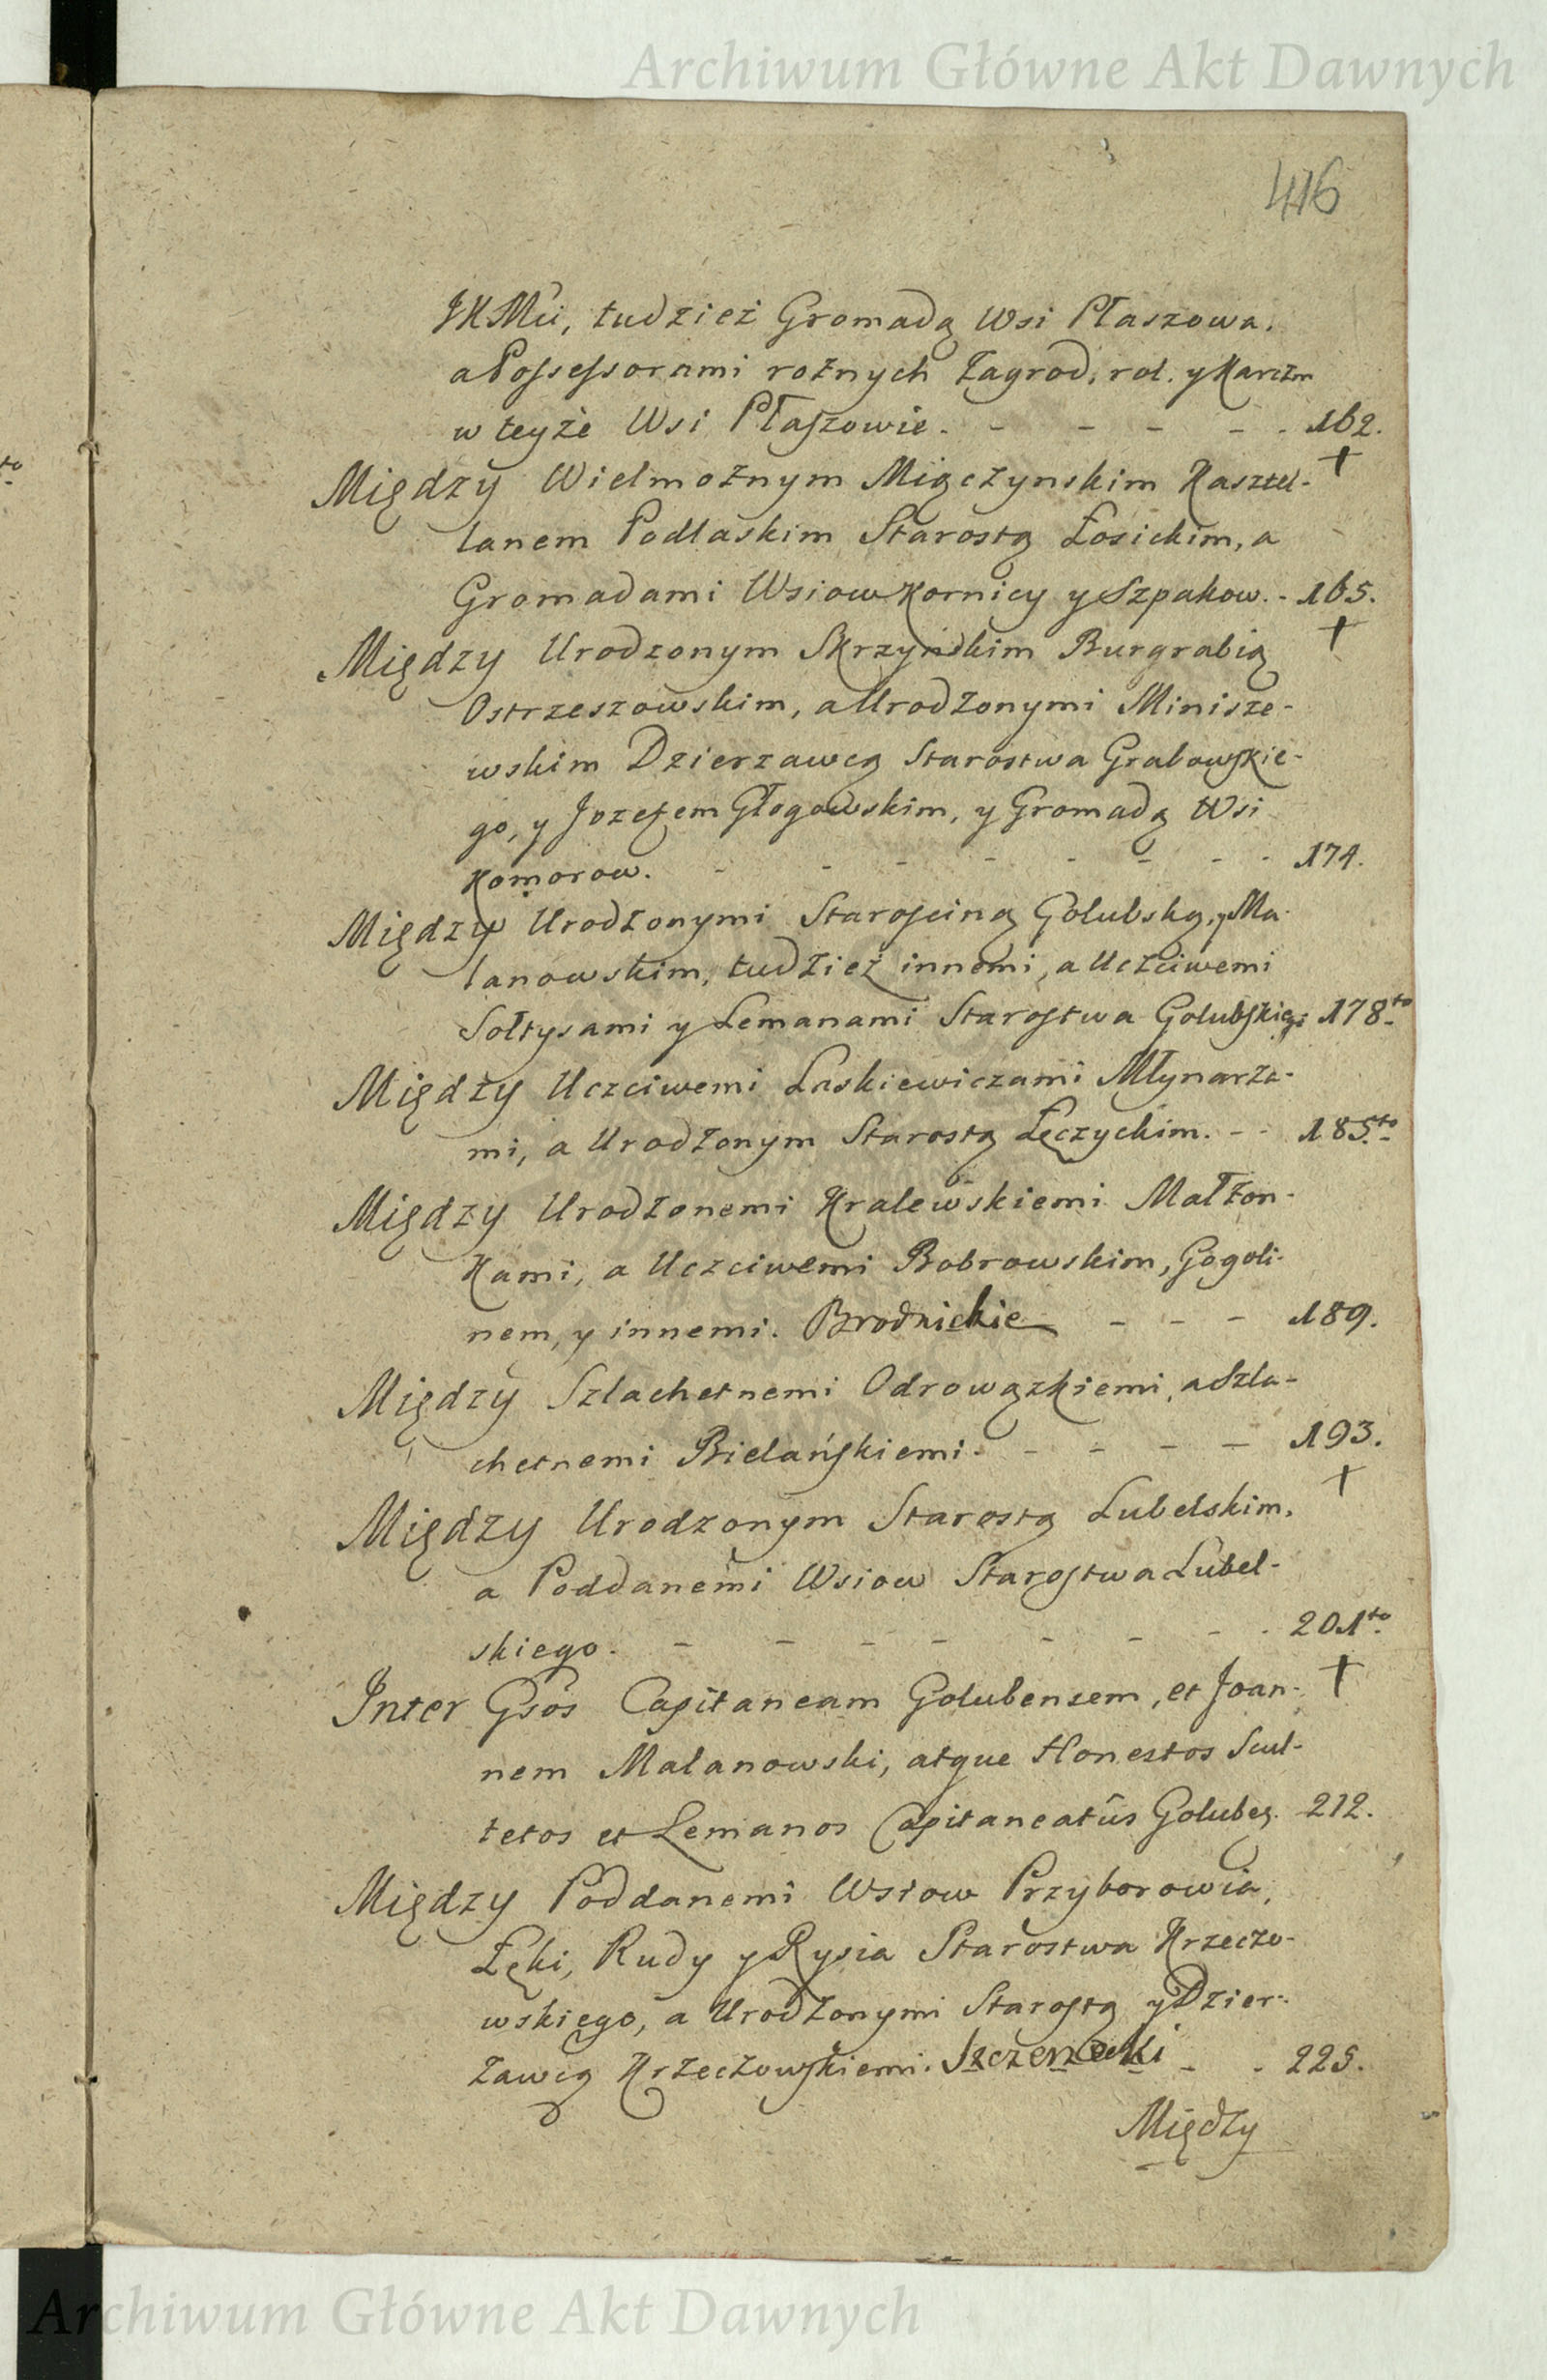 Archiwum Główne Akt Dawnych
416
JKMci, tudzież Gromadą Wsi Płaszowa,
a Possessorami rożnych Zagrod, rol. y Karczm
w teyże Wsi Płaszowie. - - - - - 162.
Między Wielmożnym Miączynskim Kasztel- +
lanem Podlaskim Starostą Łosickim, a
Gromadami Wsiow Kornicy y Szpakow. - 165.
Między Urodzonym Skrzyńskim Burgrabią +
Ostrzeszowskim, a Urodzonymi Minisze-
wskim Dzierzawcą Starostwa Grabowskie-
go, y Jozefem Głogowskim, y Gromadą Wsi
Komorow. - - - - - - - - 174.
Między Urodzonymi Starościną Golubską, y Ma-
lanowskim, tudzież innemi, a Uczciwemi
Sołtysami y Lemanami Starostwa Golubskiego 178to
Między Uczciwemi Laskiewiczami Młynarza-
mi, a Urodzonym Starostą Łęczyckim. - - 185.to
Między Urodzonemi Kralewskiemi Małżon-
kami, a Uczciwemi Bobrowskim, Gogoli-
nem, y innemi. Brodnickie - - - 189.
Między Szlachetnemi Odrowązkiemi, a Szla-
chetnemi Bielańskiemi. - - - - 193.
Między Urodzonym Starostą Lubelskim, +
a Poddanemi Wsiow Starostwa Lubel-
skiego. - - - - - - - - 201to
Inter Gsos Capitaneam Golubensem, et Joan- +
nem Malanowski, atque Honestos Scul-
tetos et Lemanos Capitaneatûs Golubeṅ. 212.
Między Poddanemi Wsiow Przyborowia,
Łęki, Rudy y Rysia Starostwa Krzeczo-
wskiego, a Urodzonymi Starostą y Dzier-
żawcą Krzeczowskiemi. Szczenzecki - - 225.
Między
Archiwum Główne Akt Dawnych